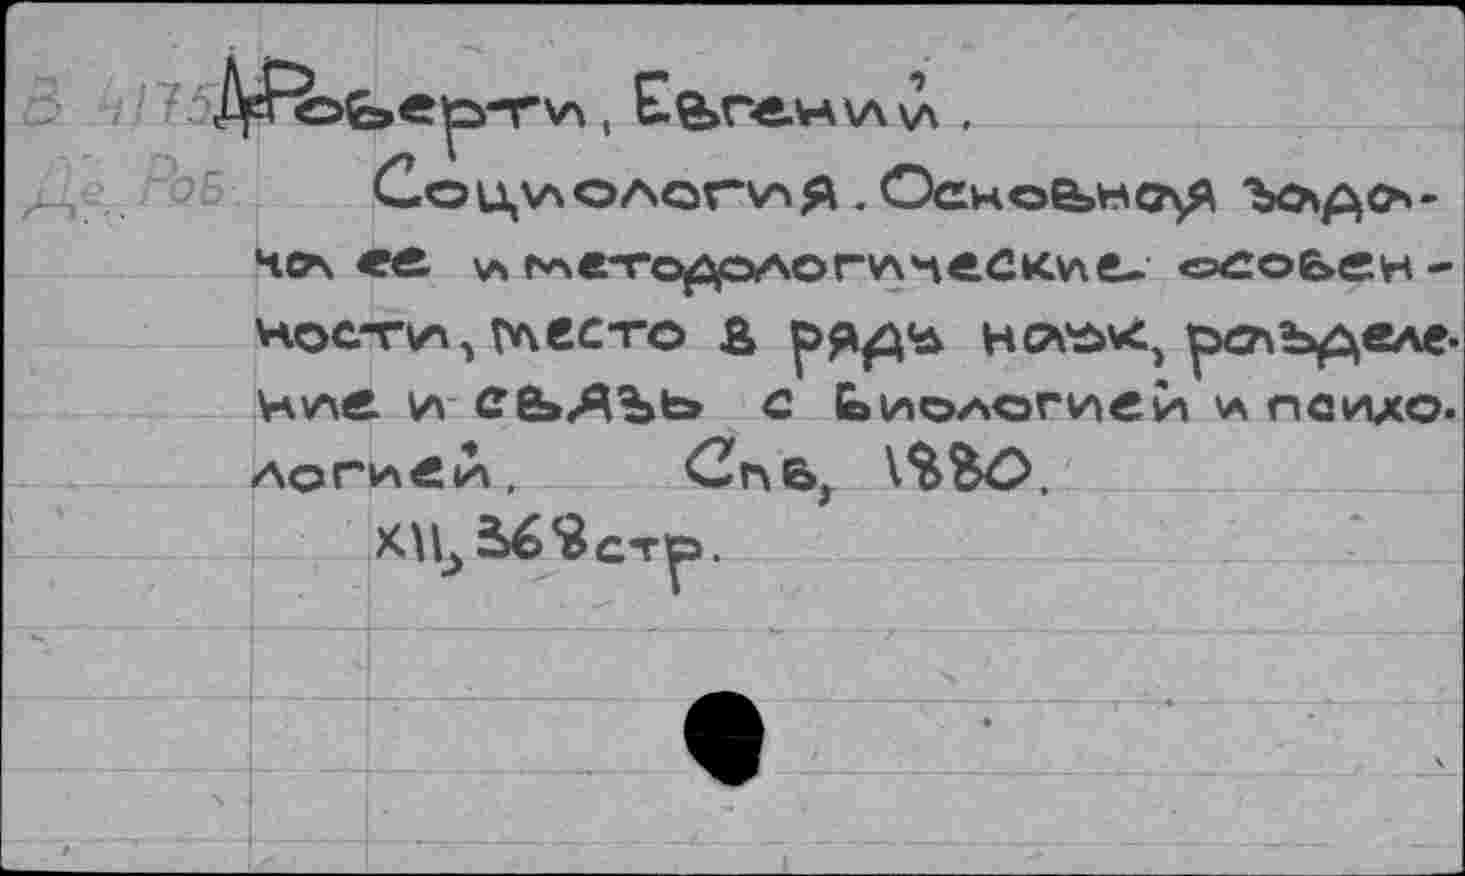 В 4175 Де-Роберти, Евгений.
Де Роб Социология. Основная зада-
ча ее и методологические особен-
ности, место в ряду наук, разделе-
ние и связь с биологией и психо-
логией. Спб, 1880.
XII, 368 стр.